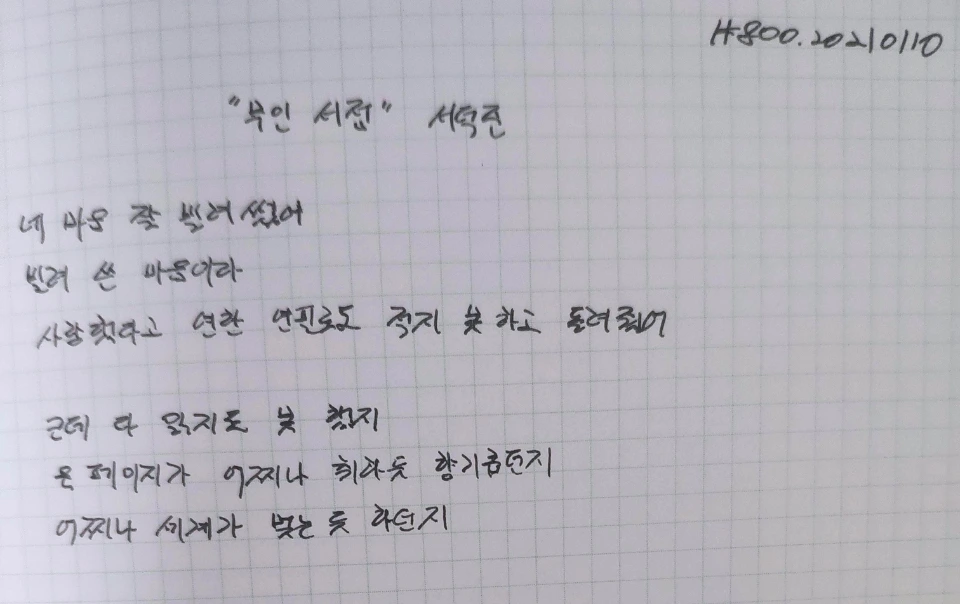 #800.20210110
"무인 서점" 서덕준
네 마음 잘 빌려 썼어
빌려 쓴 마음이라
사랑했다고 연한 연필로도 적지 못 하고 돌려줬어
근데 다 읽지도 못 했지
온 페이지가 어찌나 취하듯 향기롭던지
어찌나 세계가 멎는 듯 하던지